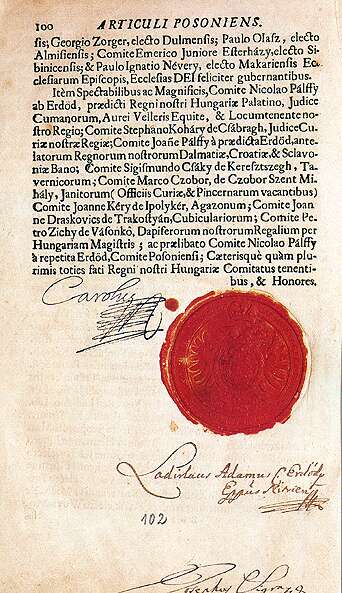 100 ARTICULI POSONIENS.
sis; Georgio Zorger, electo Dulmensis; Paulo Olasz, electo
Almisiensis; Comite Emerico Juniore Esterházy, electo Si-
binicensis; & Paulo Ignatio Névery, electo Makariensis Ec-
clesiarum Episcopis, Ecclesias DEI feliciter gubernantibus.
Itèm Spectabilibus ac Magnificis, Comite Nicolao Pálffy
ab Erdöd, prædicti Regni nostri Hungariæ Palatino, Judice
Cumanorum, Aurei Velleris Equite, & Locumtenente no-
stro Regio; Comite Stephano Koháry de Csábragh, Judice Cu-
riæ nostræ Regiæ; Comite Joañe Pálffy à prædicta Erdöd, ante-
latorum Regnorum nostrorum Dalmatiæ, Croatiæ, & Sclavo-
niæ Bano; Comite Sigismundo Csáky de Keresztszegh, Ta-
vernicorum; Comite Marco Czobor, de Czobor Szent Mi-
hály, Janitorum; (Officiis Curiæ, & Pincernarum vacantibus)
Comite Joanne Kéry de Ipolykér, Agazonum; Comite Joan-
ne Draskovics de Trakostyán, Cubiculariorum; Comite Pe-
tro Zichy de Vásonkö, Dapiferorum nostrorum Regalium per
Hungariam Magistris; ac prælibato Comite Nicolao Pálffy
à repetita Erdöd, Comite Posoniensi; Cæterisquè quàm plu-
rimis toties fati Regni nostri Hungariæ Comitatus tenenti-
bus, & Honores.
Carolus
Ladislaus Adamus C Erdödy
Eppus Nitrien
102